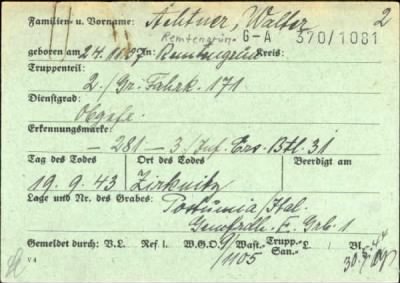 Familien- u. Vorname: Achtner, Walter 2
Remtengrün. G-A 370/1081
geboren am 24.11.27 in: Remtengrün Kreis:
Truppenteil:
2./Gr. Fahrk. 171
Dienstgrad:
Obgefr.
Erkennungsmarke:
– 281 – 3./Inf. Ers. Btl. 31
Tag des Todes Ort des Todes Beerdigt am
19.9.43 Zirknitz
Lage und Nr. des Grabes: Postumia/Ital.
Gemfrdh. E. Grb. 1
Gemeldet durch: V.L. Ref. W.G.O. Wast.- Trupp.- San.- L Bl.
1105 30.5.44
V 4